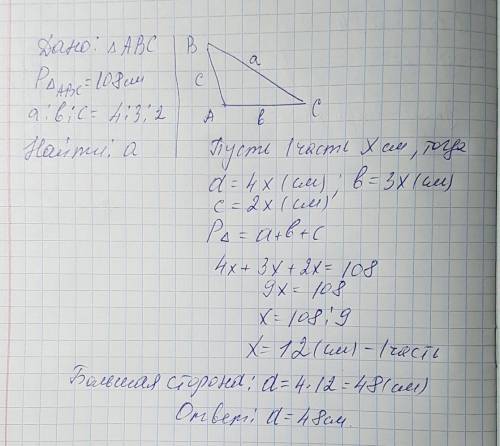 Дано: △ABC
P△ABC = 108 см
a : в : c = 4 : 3 : 2
Найти: a
B
a
c
A
в
C
Пусть 1 часть x см, тогда
a = 4x (см); в = 3x (см)
c = 2x (см)
P△ = a + в + c
4x + 3x + 2x = 108
9x = 108
x = 108 : 9
x = 12 (см) – 1 часть
Большая сторона: a = 4 · 12 = 48 (см)
Ответ: a = 48 см.